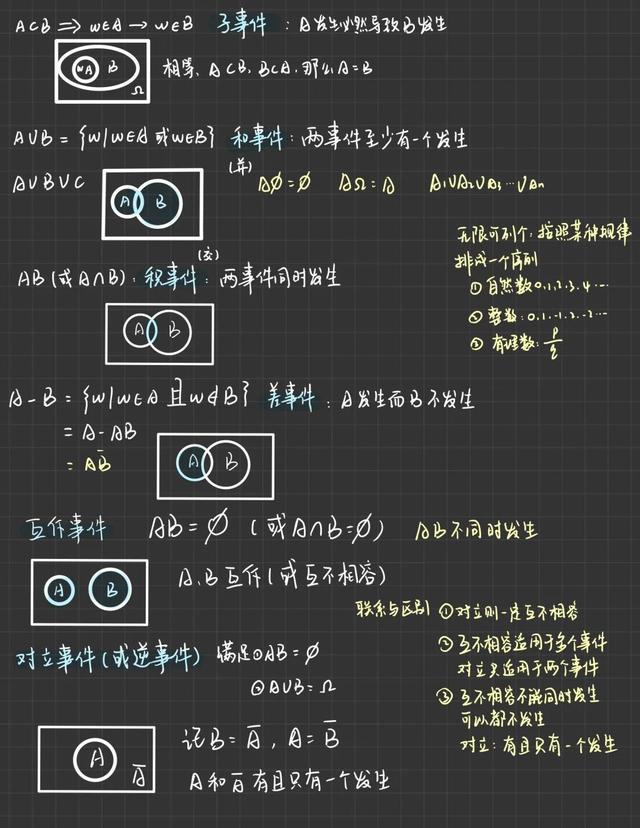 A⊂B ⟹ w∈A → w∈B 子事件：A发生必然导致B发生
wA B Ω
相等，A⊂B，B⊂A，那么A=B
A∪B = {w|w∈A 或 w∈B} 和事件：两事件至少有一个发生
(并)
A∪B∪C
A B
A∅=∅ AΩ=A A₁∪A₂∪A₃…∪Aₙ
无限可列个：按照某种规律
排成一个序列
①自然数0.1.2.3.4…
②整数：0.1.-1.2.-2…
③有理数：p/q
(交)
AB(或A∩B)：积事件：两事件同时发生
A B
A-B = {w|w∈A 且 w∉B} 差事件：A发生而B不发生
= A-AB
= AB̄
A B
互斥事件 AB=∅ (或A∩B=∅) AB不同时发生
A B
A.B互斥(或互不相容)
联系与区别 ①对立则一定互不相容
②互不相容适用于多个事件
对立只适用于两个事件
③互不相容不能同时发生
可以都不发生
对立：有且只有一个发生
对立事件(或逆事件) 满足①AB=∅
②A∪B=Ω
A Ā
记B=Ā，A=B̄
A和Ā有且只有一个发生